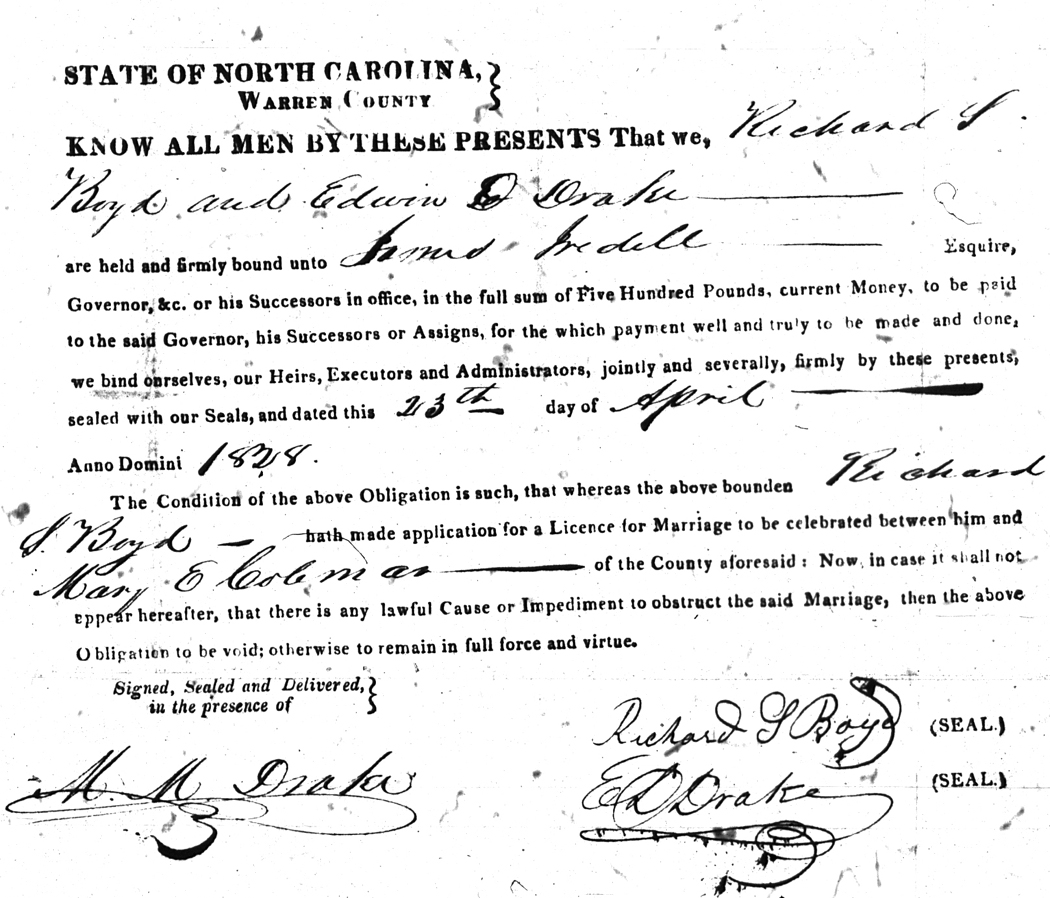 STATE OF NORTH CAROLINA,
WARREN COUNTY
KNOW ALL MEN BY THESE PRESENTS That we, Richard S
Boyd and Edwin D Drake
are held and firmly bound unto James Iredell Esquire,
Governor, &c. or his Successors in office, in the full sum of Five Hundred Pounds, current Money, to be paid
to the said Governor, his Successors or Assigns, for the which payment well and truly to be made and done,
we bind ourselves, our Heirs, Executors and Administrators, jointly and severally, firmly by these presents,
sealed with our Seals, and dated this 23th day of April
Anno Domini 1828.
The Condition of the above Obligation is such, that whereas the above bounden Richard
S. Boyd hath made application for a Licence for Marriage to be celebrated between him and
Mary E Coleman of the County aforesaid: Now, in case it shall not
appear hereafter, that there is any lawful Cause or Impediment to obstruct the said Marriage, then the above
Obligation to be void; otherwise to remain in full force and virtue.
Signed, Sealed and Delivered,
in the presence of
Richard S Boyd (SEAL.)
M. M Drake
E D Drake (SEAL.)